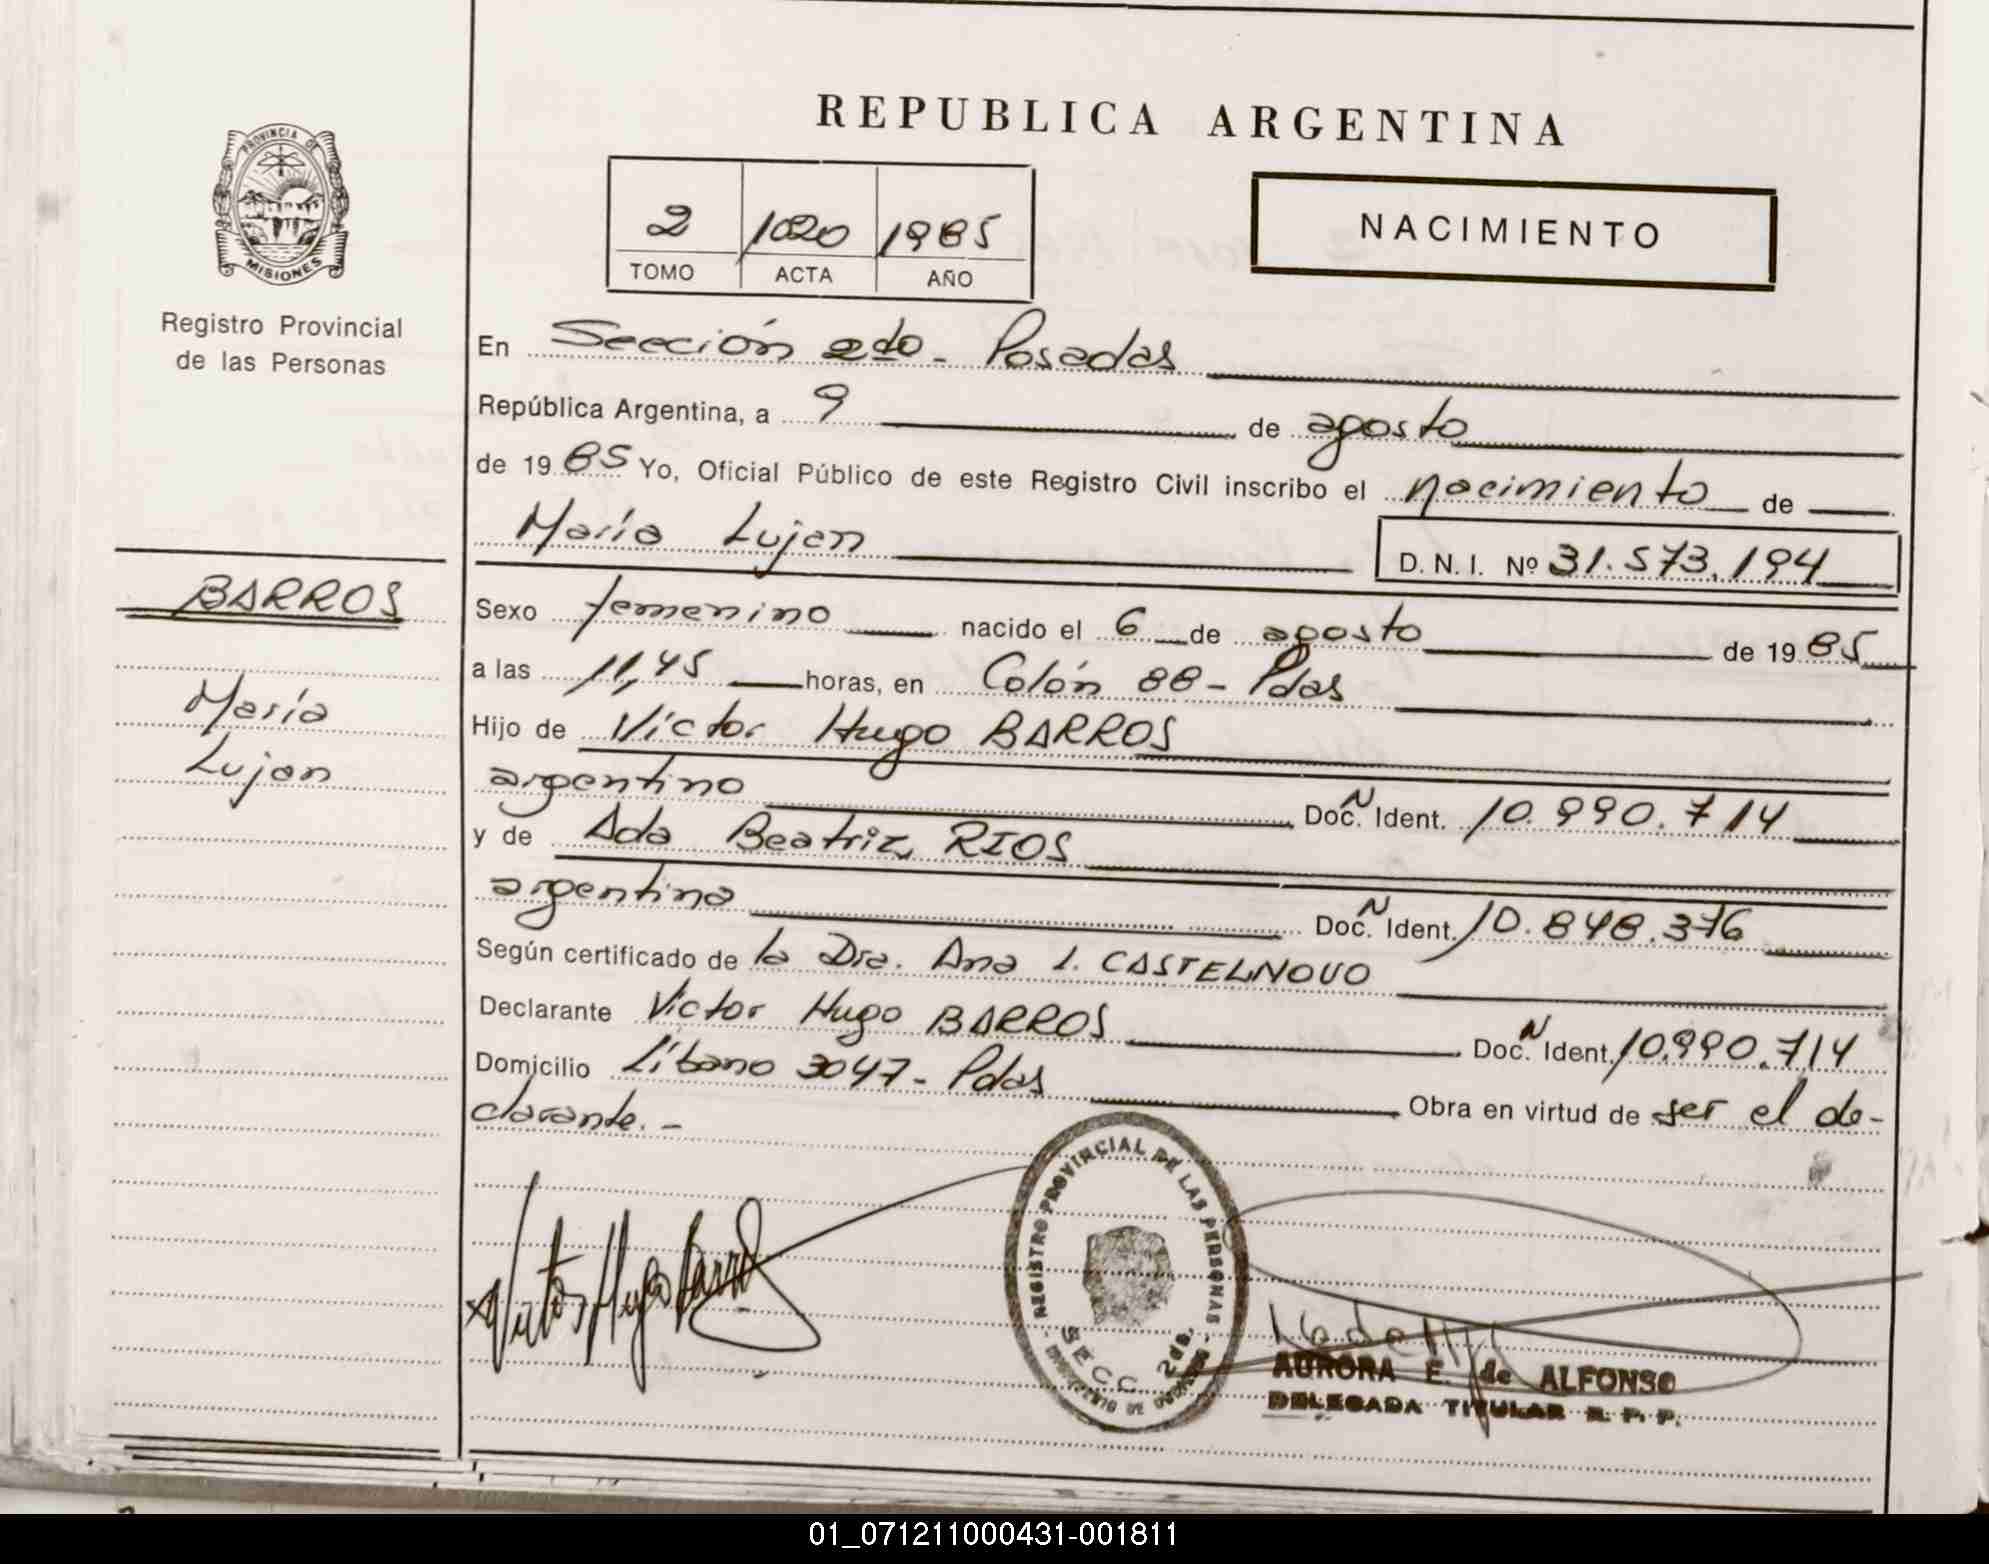 REPUBLICA ARGENTINA
PROVINCIA DE
MISIONES
Registro Provincial
de las Personas
2 1020 1985
TOMO ACTA AÑO
NACIMIENTO
En Sección 2do - Posadas
República Argentina, a 9 de agosto
de 1985 Yo, Oficial Público de este Registro Civil inscribo el nacimiento de
María Lujan
D. N. I. Nº 31.573.194
BARROS
María
Lujan
Sexo femenino nacido el 6 de agosto de 1985
a las 11,45 horas, en Colón 88 - Pdas
Hijo de Víctor Hugo BARROS
argentino Doc. N Ident. 10.990.714
y de Ada Beatriz RIOS
argentina Doc. N Ident. 10.848.376
Según certificado de la Dra. Ana I. CASTELNOVO
Declarante Víctor Hugo BARROS Doc. N Ident. 10.990.714
Domicilio Líbano 3047 - Pdas Obra en virtud de ser el de-
clarante. -
Victor Hugo Barros
REGISTRO PROVINCIAL DE LAS PERSONAS
SECC. 2da.
AURORA E. de ALFONSO
DELEGADA TITULAR R. P. P.
01_071211000431-001811